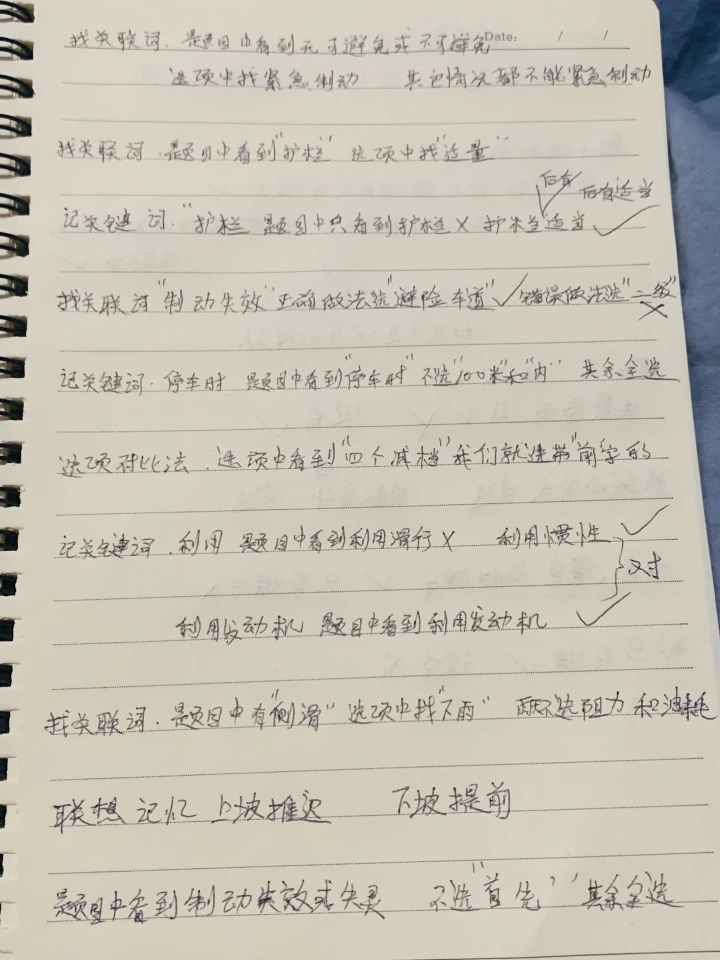 找关联词.题目中看到无可避免或不可避免
Date: / /
选项中找紧急制动 其它情况都不能紧急制动
找关联词.题目中看到"护栏" 选项中找"适量"
后有 后有适当
记关键词."护栏 题目中只看到护栏× 护栏适当 ✓
找关联词"制动失效"正确做法选"避险车道"✓ 错误做法选"二级"×
记关键词.停车时 题目中看到"停车时"不选"100米"和"内" 其余全选
选项对比法.选项中看到"四个减档"我们就选带"前"字的
记关键词.利用 题目中看到利用滑行× 利用惯性 ✓
}对
利用发动机 题目中看到利用发动机 ✓
找关联词.题目中有"侧滑"选项中找"下雨" 两不选阻力和油耗
联想记忆 上坡推迟 下坡提前
题目中看到制动失效或失灵 不选"首先" 其余全选